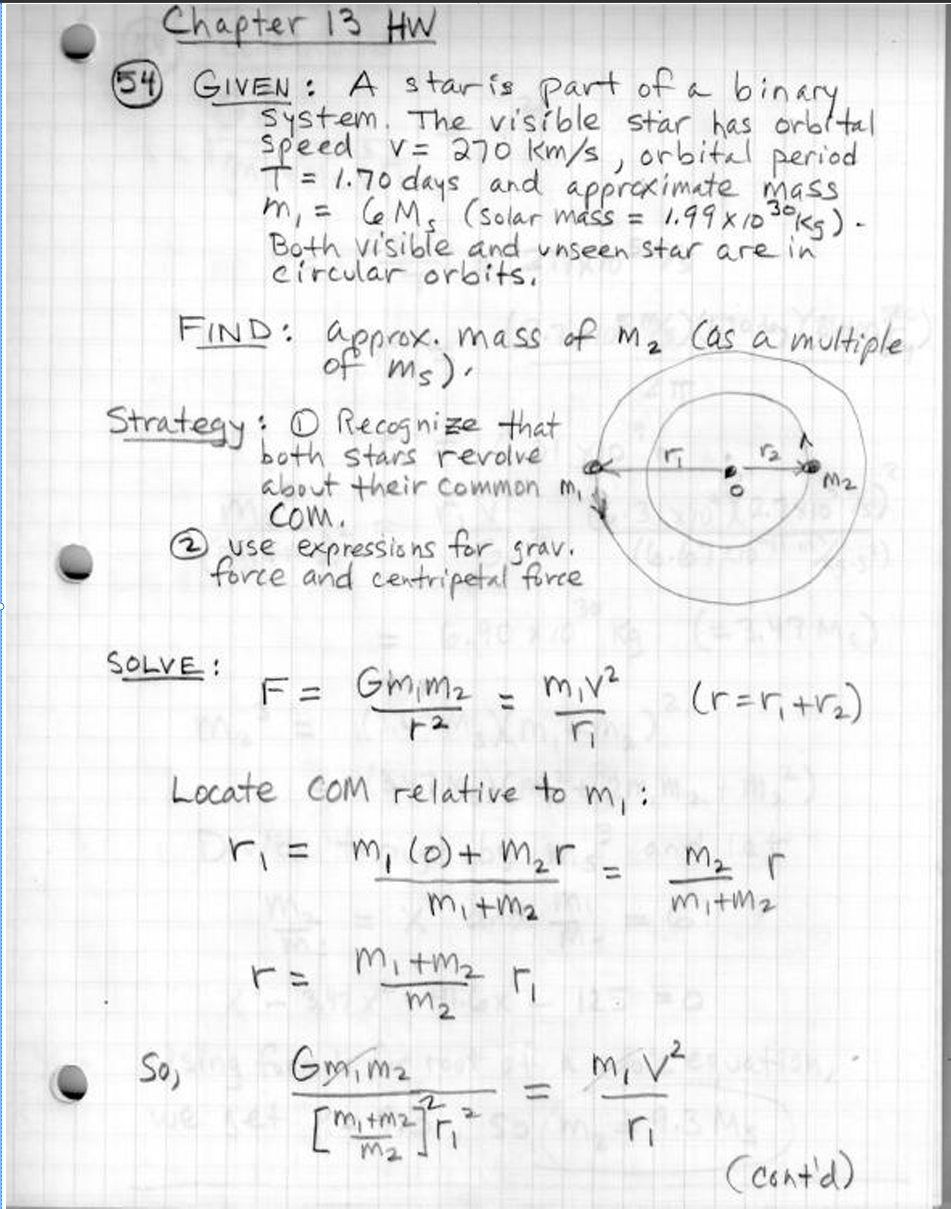 Chapter 13 HW
54 GIVEN: A star is part of a binary
system. The visible star has orbital
speed v = 270 km/s, orbital period
T = 1.70 days and approximate mass
m₁ = 6 Mₛ (solar mass = 1.99 x 10³⁰ kg).
Both visible and unseen star are in
circular orbits.
FIND: approx. mass of m₂ (as a multiple
of mₛ).
Strategy: ① Recognize that
both stars revolve
about their common
COM.
② use expressions for grav.
force and centripetal force
m₁ r₁ O r₂ m₂
SOLVE:
F = Gm₁m₂ / r² = m₁v² / r₁ (r = r₁ + r₂)
Locate COM relative to m₁:
r₁ = m₁(0) + m₂r / m₁+m₂ = m₂ / m₁+m₂ r
r = m₁+m₂ / m₂ r₁
So, Gm₁m₂ / [m₁+m₂ / m₂]² r₁² = m₁v² / r₁
(cont'd)